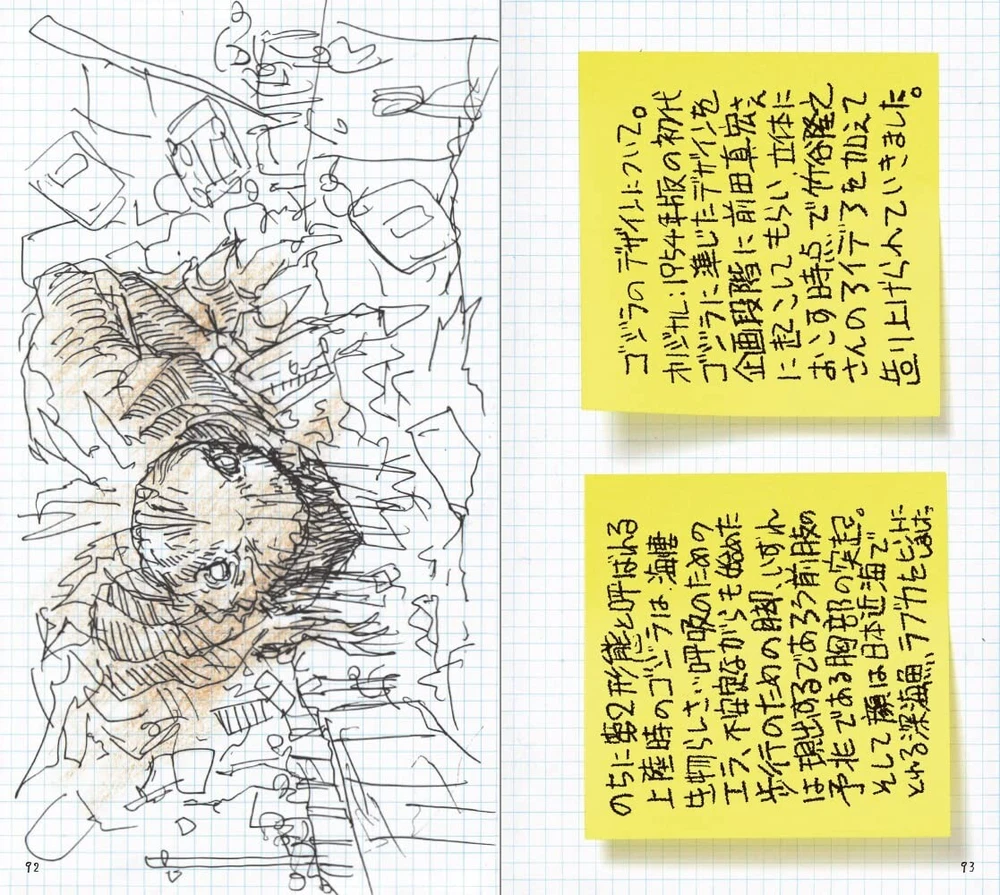 ゴジラのデザインについて。
オリジナル：1954年版の初代
ゴジラに準じたデザインを
企画段階に前田真宏さん
に起こしてもらい、立体に
おこす時点で竹谷隆之
さんのアイデアを加えて
造り上げられていきました。
のちに第2形態と呼ばれる
上陸時のゴジラは、海棲
生物らしさい呼吸のための
エラ、不安定ながらも始めた
歩行のための脚、いずれ
は現出するであろう前肢の
予兆である胸部の突起。
そして顔は日本近海で
とれる深海魚、ラブカをヒントに
しました。
92
93